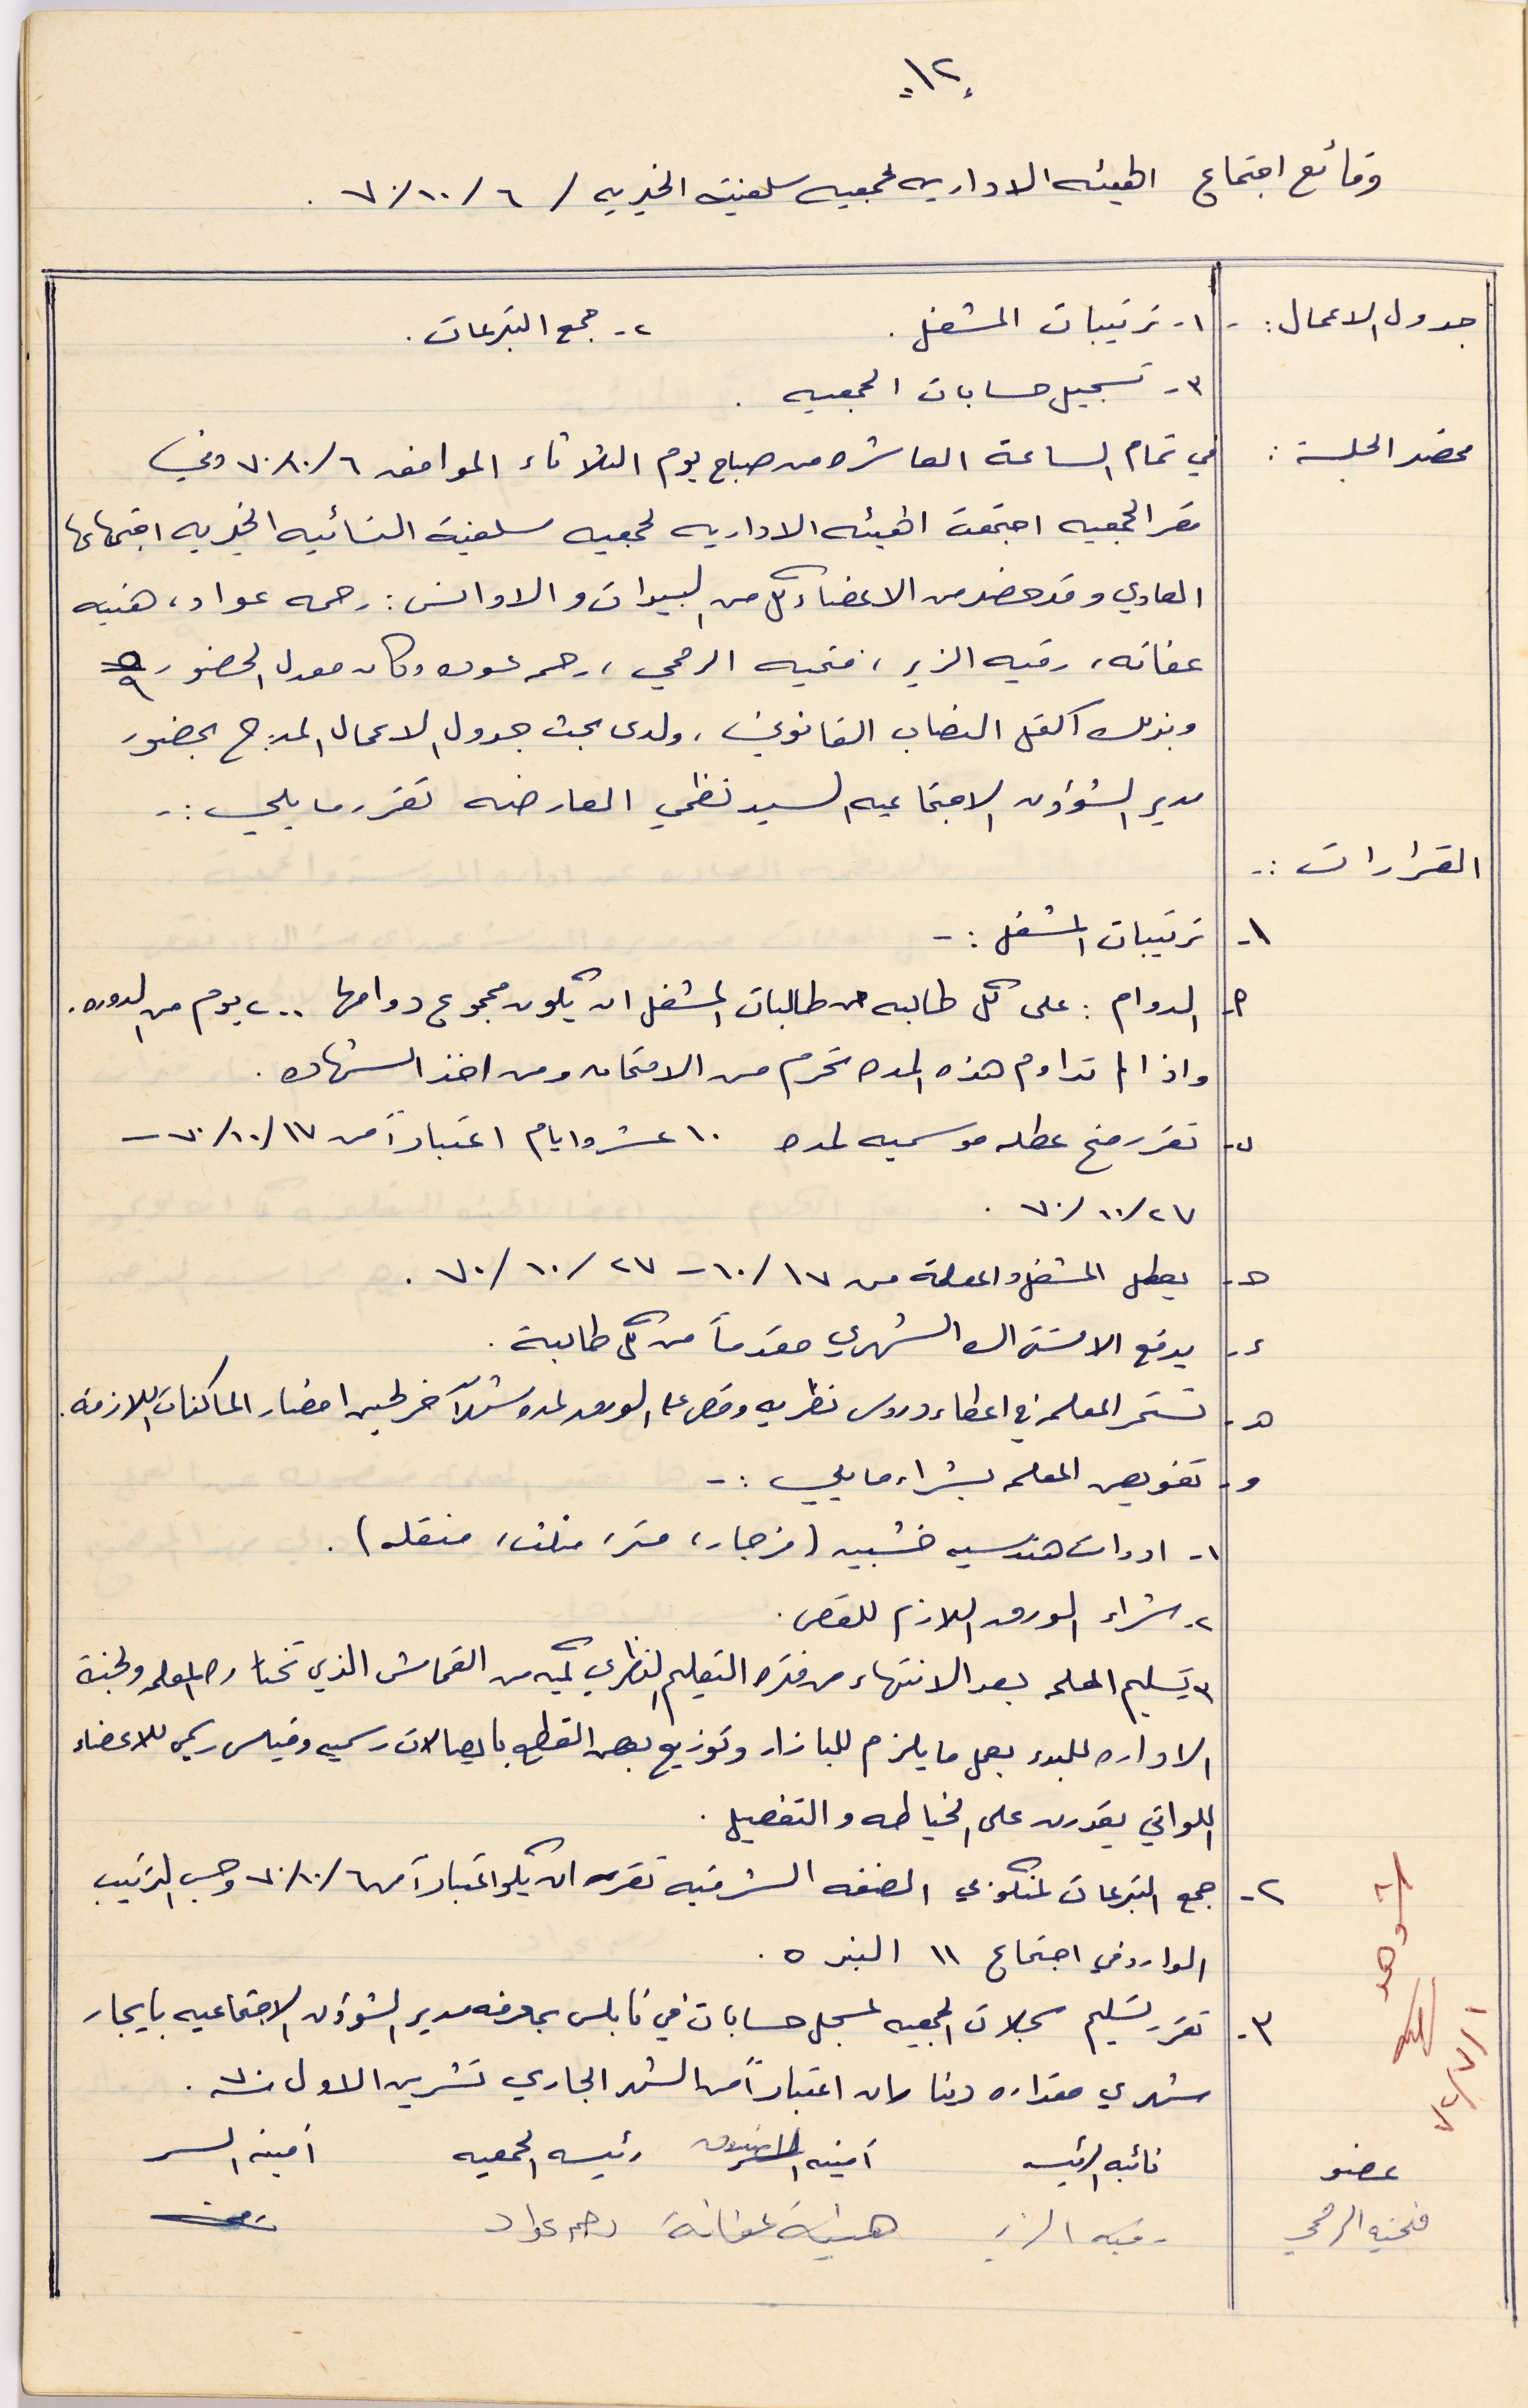 -١٢-
وقائع اجتماع الهيئه الاداريه لجمعيه سلفيت الخيريه / ٦ /١٠ /٧٠ .
جدول الاعمال : - ١- ترتيبات المشغل . ٢- جمع التبرعات .
٣- تسجيل حسابات الجمعيه .
محضر الجلسة : في تمام الساعة العاشره من صباح يوم الثلاثاء الموافق ٦/ ١٠/ ٧٠ وفي
مقر الجمعيه اجتمعت الهيئه الاداريه لجمعيه سلفيت النسائيه الخيريه اجتماعها
العادي وقد حضر من الاعضاء كل من السيدات والاوانس : رحمه عواد ، هنيه
عفانه ، رقيه الزير ، فتحيه الرمحي ، رحمه عوده وكان معدل الحضور ٥/٩
وبذلك اكتمل النصاب القانوني ، ولدى بحث جدول الاعمال المدرج بحضور
مدير الشؤون الاجتماعيه السيد نظمي العارضه تقرر ما يلي : -
القرارات : -
١- ترتيبات المشغل : -
أ- الدوام : على كل طالبه من طالبات المشغل ان يكون مجموع دوامها ٢٠٠ يوم من الدوره .
واذا لم تداوم هذه المده تحرم من الامتحان ومن اخذ الشهاده .
ب- تقرر منح عطله موسميه لمده ١٠ عشرة ايام اعتباراً من ١٧ /١٠ /٧٠ -
٢٧ /١٠ /٧٠ .
ج- يعطل المشغل والمعلمة من ١٧ /١٠ - ٢٧ /١٠ /٧٠ .
د- يدفع الاشتراك الشهري مقدماً من كل طالبة .
هـ- تستمر المعلمه في اعطاء دروس نظريه وقص على الورق لمده شهر آخر لحين احضار الماكنات اللازمة .
و- تفويض المعلمه بشراء ما يلي : -
١- ادوات هندسيه خشبيه ( فرجار ، متر ، مثلث ، منقله ) .
٢- شراء الورق اللازم للقص .
٣- تسليم المعلمه بعد الانتهاء من فتره التعليم النظري كميه من القماش الذي تختاره المعلمه ولجنة
الاداره للبدء بعمل ما يلزم للبازار وتوزيع بعض القطع بايصالات رسميه وقياس رسمي للاعضاء
اللواتي يقدرن على الخياطه والتفصيل .
٢- جمع التبرعات لمنكوبي الضفه الشرقيه تقرر ان يكون اعتباراً من ٦/ ١٠/ ٧٠ وحسب الترتيب
الوارد في اجتماع ١١ البند ٥ .
٣- تقرر تسليم سجلات الجمعيه لمسجل حسابات في نابلس بمعرفه مدير الشؤون الاجتماعيه بايجار
شهري مقداره ديناران اعتباراً من الشهر الجاري تشرين الاول ٧٠ .
عضو نائبه الرئيسه أمينه الصندوق رئيسه الجمعيه أمينه السر
فتحيه الرمحي رقيه الزير هنية عفانة رحمه عواد
١ /٧ /٧٢